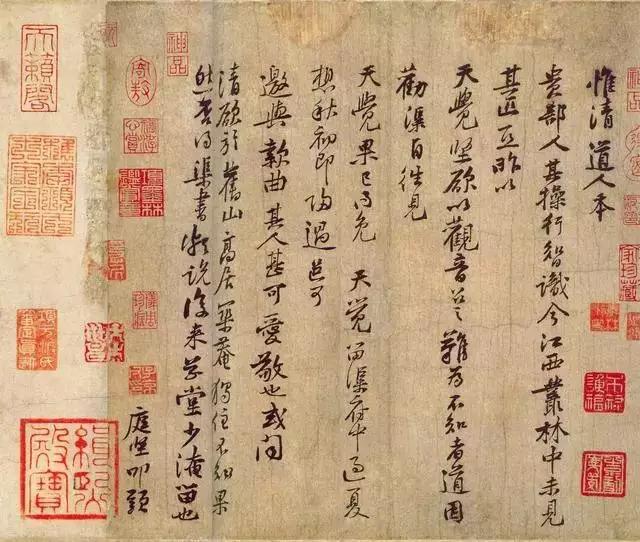 惟清道人本
貴部人其操行智識今江西叢林中未見
其匹亞昨以
天覺堅欲以觀音召之難為不知者道因
勸渠自往見
天覺果已得免 天覺留渠府中過夏
想秋初即歸過邑可
邀與款曲其人甚可愛敬也或聞
清欲於舊山高居築菴獨住不知果
然否得渠書說後來草堂少淹留也
庭堅叩頭
神品
天籟閣
緝熙殿寶